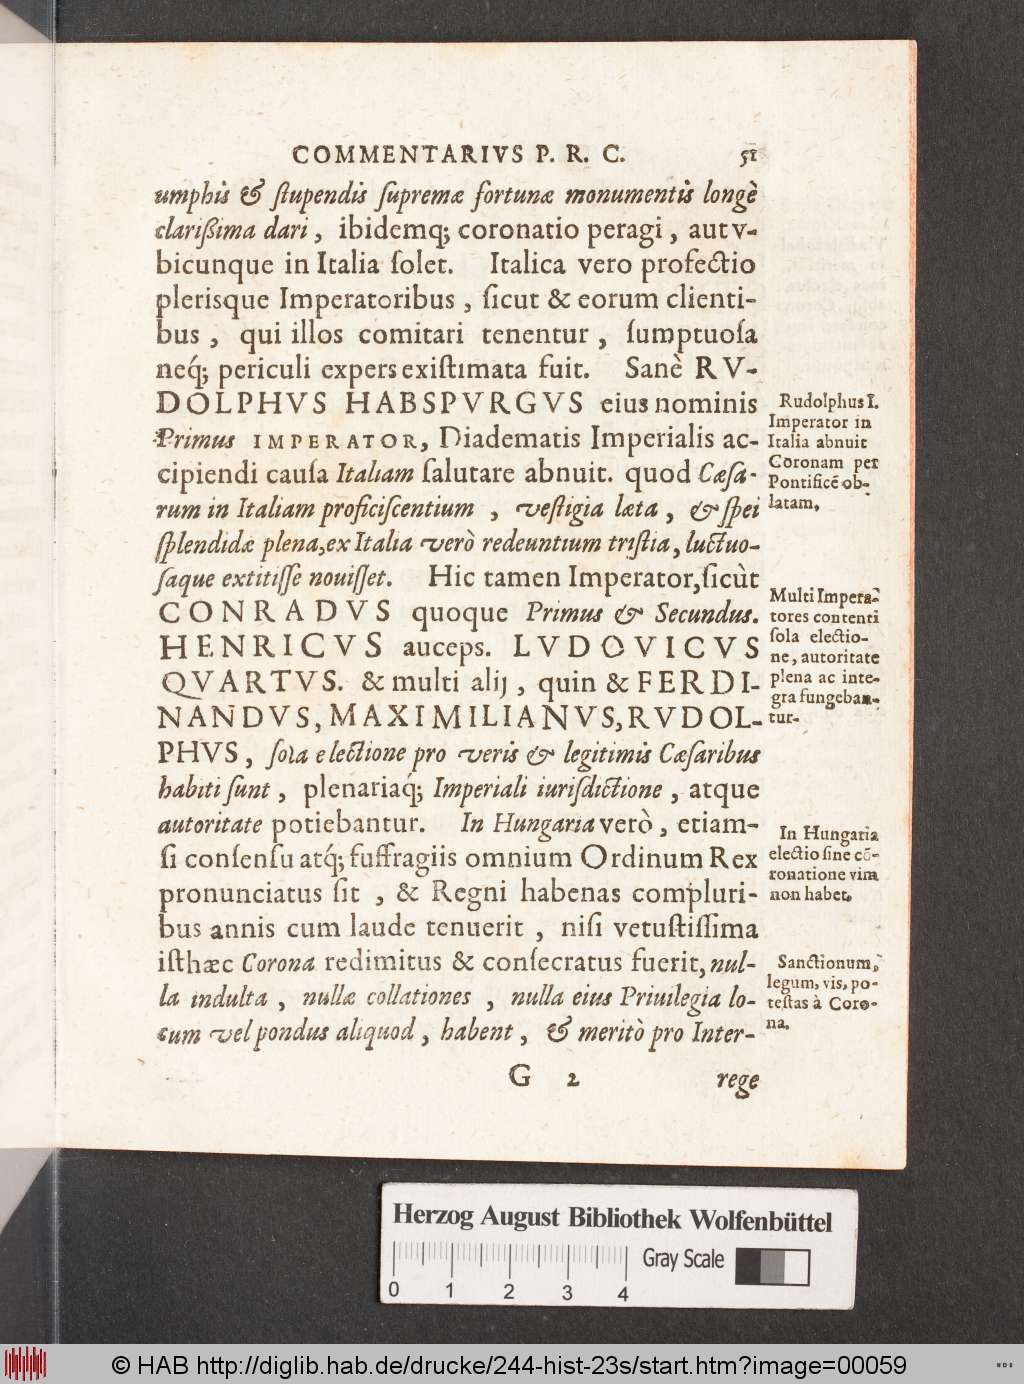 COMMENTARIVS P. R. C. 51
umphis & ſtupendis ſupremæ fortunæ monumentis longè
clarißima dari, ibidemq; coronatio peragi, aut v-
bicunque in Italia ſolet. Italica vero profectio
plerisque Imperatoribus, ſicut & eorum clienti-
bus, qui illos comitari tenentur, ſumptuoſa
neq́; periculi expers exiſtimata fuit. Sanè RV-
DOLPHVS HABSPVRGVS eius nominis
Primus IMPERATOR, Diadematis Imperialis ac-
cipiendi cauſa Italiam ſalutare abnuit. quod Cæſa-
rum in Italiam proficiſcentium, veſtigia læta, & ſpei
ſplendidæ plena, ex Italia verò redeuntium triſtia, luctuo-
ſaque extitiſſe nouiſſet. Hic tamen Imperator, ſicùt
CONRADVS quoque Primus & Secundus.
HENRICVS auceps. LVDOVICVS
QVARTVS. & multi alij, quin & FERDI-
NANDVS, MAXIMILIANVS, RVDOL-
PHVS, ſola electione pro veris & legitimis Cæſaribus
habiti ſunt, plenariaq́; Imperiali iuriſdictione, atque
autoritate potiebantur. In Hungaria verò, etiam-
ſi conſenſu atq́; ſuffragiis omnium Ordinum Rex
pronunciatus ſit, & Regni habenas compluri-
bus annis cum laude tenuerit, niſi vetuſtiſſima
iſthæc Corona redimitus & conſecratus fuerit, nul-
la indulta, nullæ collationes, nulla eius Priuilegia lo-
cum vel pondus aliquod, habent, & meritò pro Inter-
G 2 rege
Rudolphus I.
Imperator in
Italia abnuit
Coronam per
Pontificē ob-
latam.
Multi Impera-
tores contenti
ſola electio-
ne, autoritate
plena ac inte-
gra fungeban-
tur.
In Hungaria
electio ſine co-
ronatione vim
non habet.
Sanctionum,
legum, vis, po-
teſtas à Coro-
na.
Herzog August Bibliothek Wolfenbüttel
Gray Scale
0 1 2 3 4
© HAB http://diglib.hab.de/drucke/244-hist-23s/start.htm?image=00059